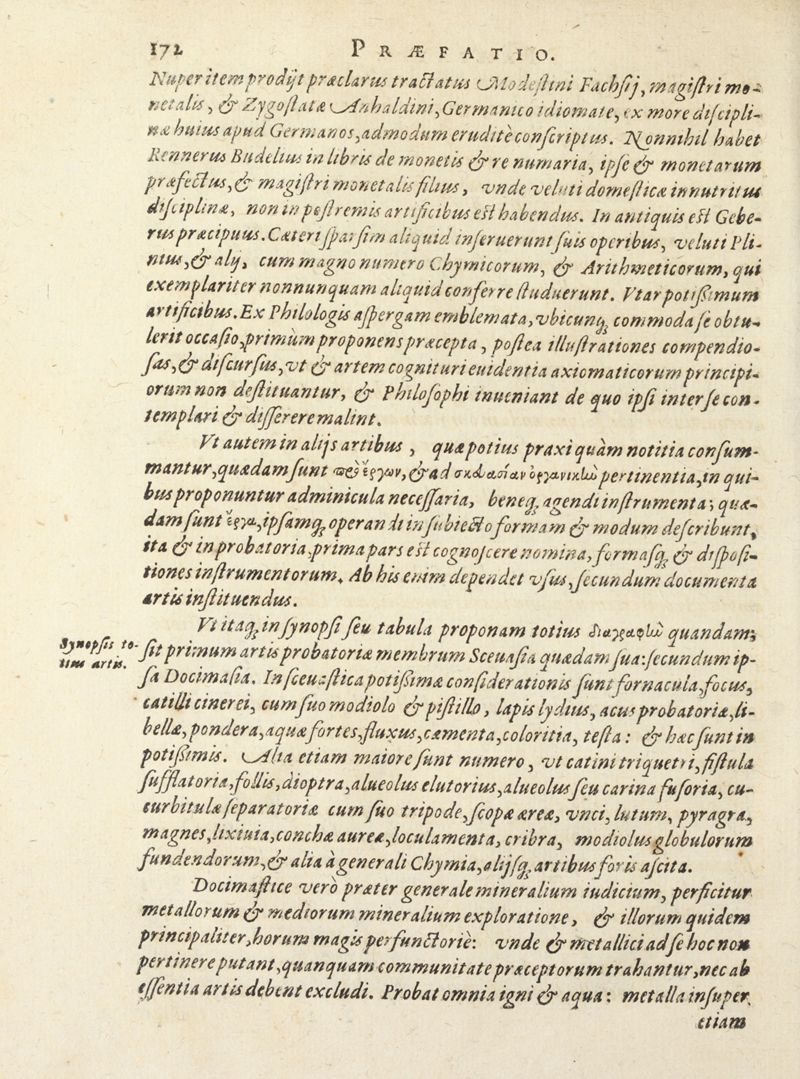 172 PRÆFATIO.
Nuper item prodijt præclarus tractatus Modestini Fachsij, magistri mo-
netalis, & Zygostatæ Anhaldini, Germanico idiomate, ex more discipli-
næ huius apud Germanos, admodum erudite conscriptus. Nonnihil habet
Rennerus Budelius in libris de monetis & re numaria, ipse & monetarum
præfectus, & magistri monetalis filius, vnde veluti domestica innutritus
disciplina, non in postremis artificibus est habendus. In antiquis est Gebe-
rus præcipuus. Cæteri sparsim aliquid inseruerunt suis operibus, veluti Pli-
nius, & alij, cum magno numero Chymicorum, & Arithmeticorum, qui
exemplariter nonnunquam aliquid conferre studuerunt. Vtar potissimum
artificibus. Ex Philologis aspergam emblemata, vbicunq; commoda se obtu-
lerit occasio, primùm proponens præcepta, postea illustrationes compendio-
sas, & discursus, vt & artem cognituri euidentia axiomaticorum principi-
orum non destituantur, & Philosophi inueniant de quo ipsi inter se con-
templari & disserere malint.
Vt autem in alijs artibus, quæ potius praxi quàm notitia consum-
mantur, quædam sunt πρὸ ἔργων, & ad σκευασίαν ὀργανικὴν pertinentia, in qui-
bus proponuntur adminicula necessaria, beneq; agendi instrumenta; quæ-
dam sunt ἔργα, ipsamq; operandi in subiecto formam & modum describunt,
ita & in probatoria, prima pars est cognoscere nomina, formasq; & disposi-
tiones instrumentorum. Ab his enim dependet vsus, secundum documenta
artis instituendus.
Synopsis to-
tius artis.
Vt itaq; in synopsi seu tabula proponam totius διαγραφὴν quandam;
sit primum artis probatoriæ membrum Sceuasia quædam sua: secundum ip-
sa Docimasia. In sceuastica potissimæ considerationis sunt fornacula, focus,
catilli cinerei, cum suo modiolo & pistillo, lapis lydius, acus probatoriæ, li-
bellæ, pondera, aquæ fortes, fluxus, cæmenta, coloritia, testa: & hæc sunt in
potissimis. Alia etiam maiore sunt numero, vt catini triquetri, fistula
sufflatoria, follis, dioptra, alueolus elutorius, alueolus seu carina fusoria, cu-
curbitulæ separatoriæ cum suo tripode, scopæ æreæ, vnci, lutum, pyragra,
magnes, lixiuia, conchæ aureæ, loculamenta, cribra, modiolus globulorum
fundendorum, & alia à generali Chymia, alijsq; artibus foris ascita.
Docimastice verò præter generale mineralium iudicium, perficitur
metallorum & mediorum mineralium exploratione, & illorum quidem
principaliter, horum magis perfunctoriè: vnde & metallici ad se hoc non
pertinere putant, quanquam communitate præceptorum trahantur, nec ab
essentia artis debent excludi. Probat omnia igni & aqua: metalla insuper
etiam